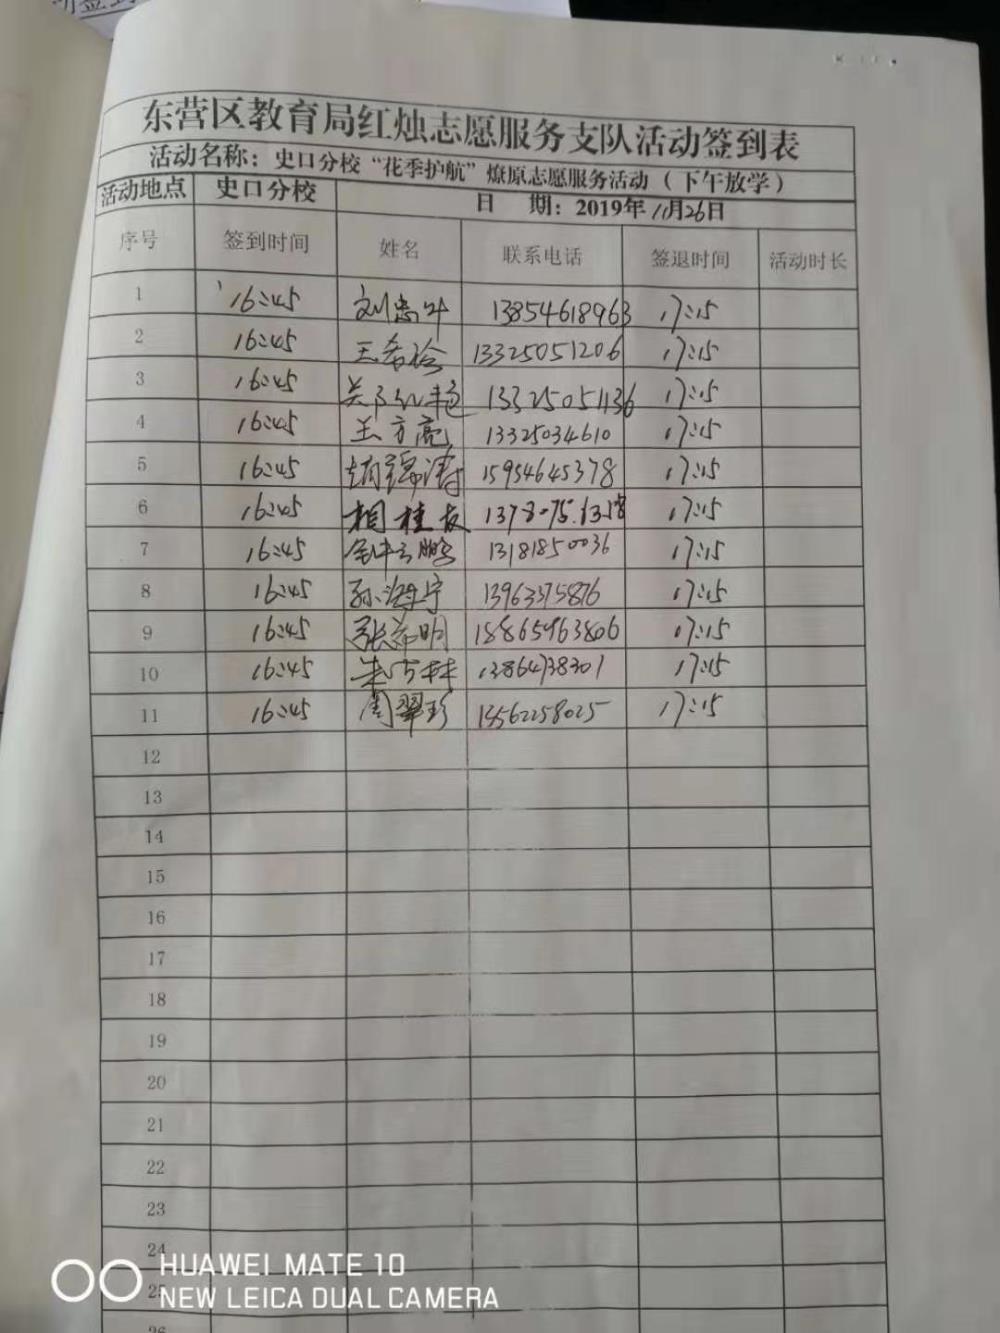 东营区教育局红烛志愿服务支队活动签到表
活动名称：史口分校“花季护航”燎原志愿服务活动（下午放学）
活动地点 史口分校 日 期：2019年10月26日
序号 签到时间 姓名 联系电话 签退时间 活动时长
1 16:45 13854618963 17:15
2 16:45 13325051206 17:15
3 16:45 13325051136 17:15
4 16:45 王方亮 13325034610 17:15
5 16:45 15954645378 17:15
6 16:45 相桂友 17:15
7 16:45 钟云鹏 13181850036 17:15
8 16:45 孙海宁 13963375876 17:15
9 16:45 张希明 18865963806 17:15
10 16:45 13864738301 17:15
11 16:45 周翠珍 13562258025 17:15
12
13
14
15
16
17
18
19
20
21
22
23
24
25
26
HUAWEI MATE 10
NEW LEICA DUAL CAMERA